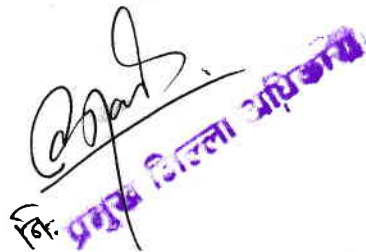 नि. प्रमुख जिल्ला अधिकारी